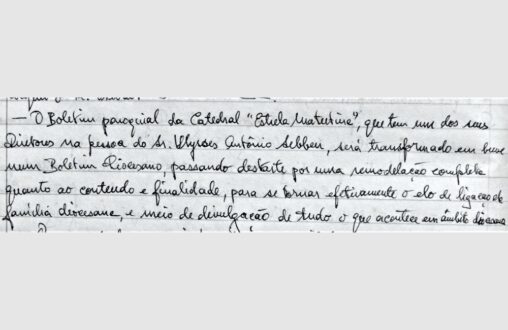 — O Boletim paroquial da Catedral "Estrela Matutina", que tem um dos seus
diretores na pessoa do Sr. Ulysses Antônio Sebben, será transformado em breve
num Boletim Diocesano, passando destarte por uma remodelação completa
quanto ao conteúdo e finalidade, para se tornar efetivamente o elo de ligação da
família diocesana, e meio de divulgação de tudo o que acontece em âmbito diocesano